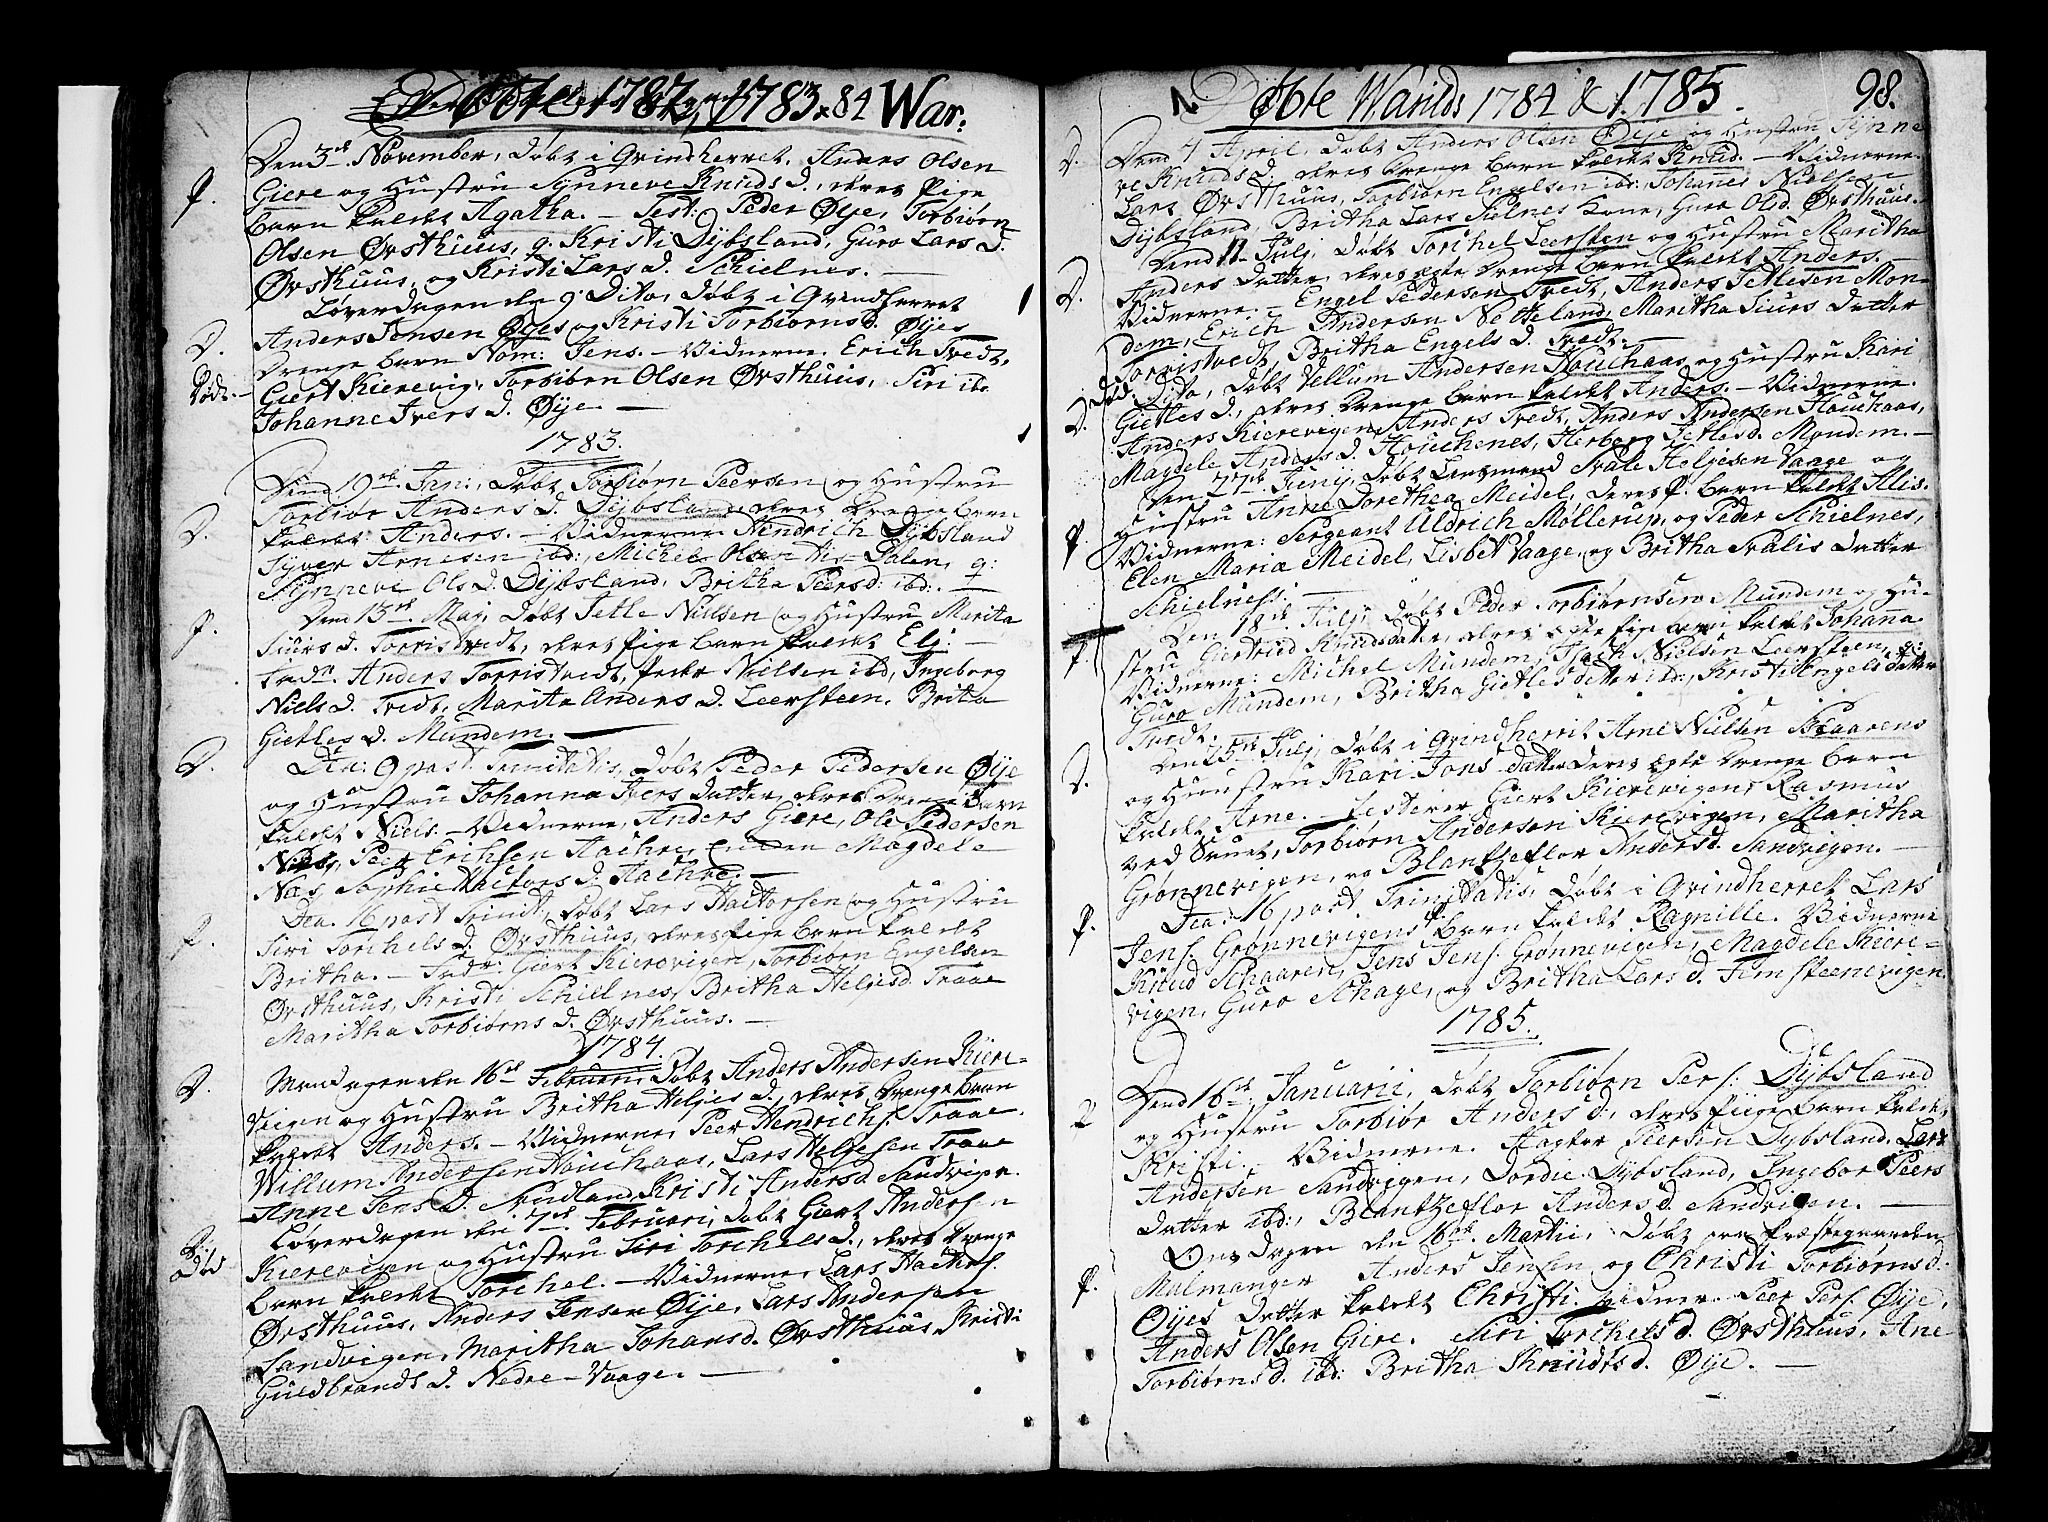 Døbte 1782, 1783 & 84 War:
Den 3de November, Døbt i Qvindherret, Anders Olsen
P. Giere og Hustru Synneve Knuds D., deres Pige
barn kaldt Agatha. – Test: Peder Øije, Torbiørn
Olsen Ørsthuus, q. Kristi Dybsland, Guro Lars D.
Ørsthuus, og Kristi Lars D. Schielnes. –
Løverdagen den 9. Dito, Døbt i Qvindherret
D. Anders Jensen Øyes og Kristi Torbiørns D. Øijes
Drenge barn Nom: Jens. – Vidnerne. Erich Tvedt,
Giert Kierevig, Torbiørn Olsen Ørsthuus, Siri ibd
Johanne Ivers D. Øije. –
1783.
Dend 19de Jan:, Døbt Torbiørn Peersen og Hustru
Torbior Anders D. Dybsland, deres Drenge barn
D. kaldt Anders. – Vidnerne Hendrich Dybsland
Syver Arnesen ibd:, Michel Olsen Dalen, q:
Synneve Ols D. Dybsland, Britha Peers d: ibd: –
Dend 13de Maj, Døbt Tetle Nielsen og Hustru Marita
P. Siurs D. Torristvedt, deres Pige barn kaldt Eli. –
Anders Torristvedt, Peder Nielsen ibd, Ingeborg
Niels D. Tvedt, Marita Anders D. Leersteen, Brita
Gietles D. Mundem. –
D. Do: 9 post Trinitatis, Døbt Peder Pedersen Øije
og Hustru Johanna Ivers Datter, deres Drenge barn
kaldt Niels. – Vidnerne, Anders Giere, Ole Pedersen
Peer Erichsen Aachre, Magdele
Næs, Sophie D. Aachre. –
Do: 16 post Trinit:, Døbt Lars Hactorsen og Hustru
P. Siri Torchels D. Ørsthuus, deres Pige barn kaldt
Britha. – Giert Kierevigen, Torbiørn Engelsen
Ørsthuus, Kristi Schielnes, Britha Heljesd. Traae
Maritha Torbiørns D. Ørsthuus. –
1784.
D. Mandagen den 16de Februari, Døbt Anders Andersen Kiere-
viigen og Hustru Britha Heljes D., deres Drenge barn
kaldt Anders. – Vidnerne, Peer Hendrichs. Traae.
Willum Andersen Houchaas, Lars Heljesen Traae
Anne Jens D. Nordland, Kristi Anders d. Sandvigen.
Løverdagen den 7de Februari, Døbt Giert Andersen
Kierevigen og Hustru Siri Torchels D., deres Drenge
barn kaldt Torchel. – Vidnerne, Lars Hactors.
Ørsthuus, Anders Jensen Øije, Lars Andersen
Sandvigen, Maritha Johans d. Ørsthuus, Kristi
Guldbrands D. Nedre-Vaage. –
Døbte Warilds 1784 & 1785. 98.
D. Dend 4 April, Døbt Anders Olsen Øije og Hustru Synne
ve Knuds D. deres Drenge barn kaldt Knud. – Vidnerne.
Lars Ørsthuus, Torbiørn Engelsen ibd: Johannes Nielsen
Dybsland, Britha Lars Sielnes Kone, Guro Ols d. Ørsthuus.
Dend 11 Julj, Døbt Torchel Leersteen og Hustru Maritha
D. Anders Datter, deres egte Drenge barn kaldt Anders. –
Vidnerne: – Engel Pedersen Tvedt, Anders Tetlesen Mon-
dem, Erich Andersen Netteland, Maritha Siurs Datter
Torristvedt, Britha Engels D. Tvedt. –
Dito, Døbt Vellum Andersen Houchaas og Hustru Kari
D. Gietles D., deres Drenge barn kaldt Anders. – Vidnerne.
Anders Kierevigen, Anders Tvedt, Anders Andersen Houchaas,
Magdele Anders D. Houchenes, Herborg Tetles d. Mundem. –
Den 27de Junij, Døbt Lensmand Svale Holjesen Vaage og
Hustru Anne Dorethea Meidel, deres P. barn kaldt Alis.
P. Vidnerne: Sergeant Uldrich Møllerup, og Peder Schielnes,
Elen Maria Meidel, Lisbet Vaage, og Britha Svalis Datter
Schielnes. –
Den 18de Julij, Døbt Peder Torbiørnsen Mundem og Hu-
P. stru Giertrud Knudsdatter, deres egte Pige barn kaldt Johanna
Vidnerne: Michel Mundem, Isach Nielsen Leersteen, q:
Guro Mundem, Britha Gietles datter ibd:, Kristi Engels datter
Tvedt.
Den 25de Julj, Døbt i Qvindherrit Arne Nielsen Skaarens
D. og Huustru Kari Jons datter deres egte Drenge barn
kaldt Arne. – Testerer Giert Kierevigen, Rasmus
ved Sunt, Torbiørn Andersen Kierevigen, Maritha
Grønnevigen, og Blantzeflor Anders d. Sandvigen. –
Do: 16 post Trinitatis, Døbt i Qvindherret Lars
P. Jens. Grønnevigens P. barn kaldt Ragnille. Vidnerne
Knud Schaaren, Jens Jens. Grønnevigen, Magdele Kiere-
vigen, Guro Schage, og Britha Lars D. Femsteenevigen.
1785.
Dend 16de Januarii, Døbt Torbiørn Pers: Dybsland
P. og Hustru Torbior Anders D., deres Piige barn kaldt
Kristi. – Vidnerne. Hagtor Peersen Dybsland, Lars
Andersen Sandvigen, Lordie Dybsland, Ingebor Peers
Datter ibd:, Blantzeflor Anders d. Sandvigen. –
Onsdagen den 16de Martii, Døbt paa Præstegaarden
P. Malmanger Anders Jensen og Christi Torbiørns d.
Øyes Datter kaldt Christi. Vidner. Peer Pers. Øije,
Anders Olsen Giere. Siri Torchels d. Ørsthuus, Ane
Torbiørns d. ibd: Britha Knudts d. Øije. –